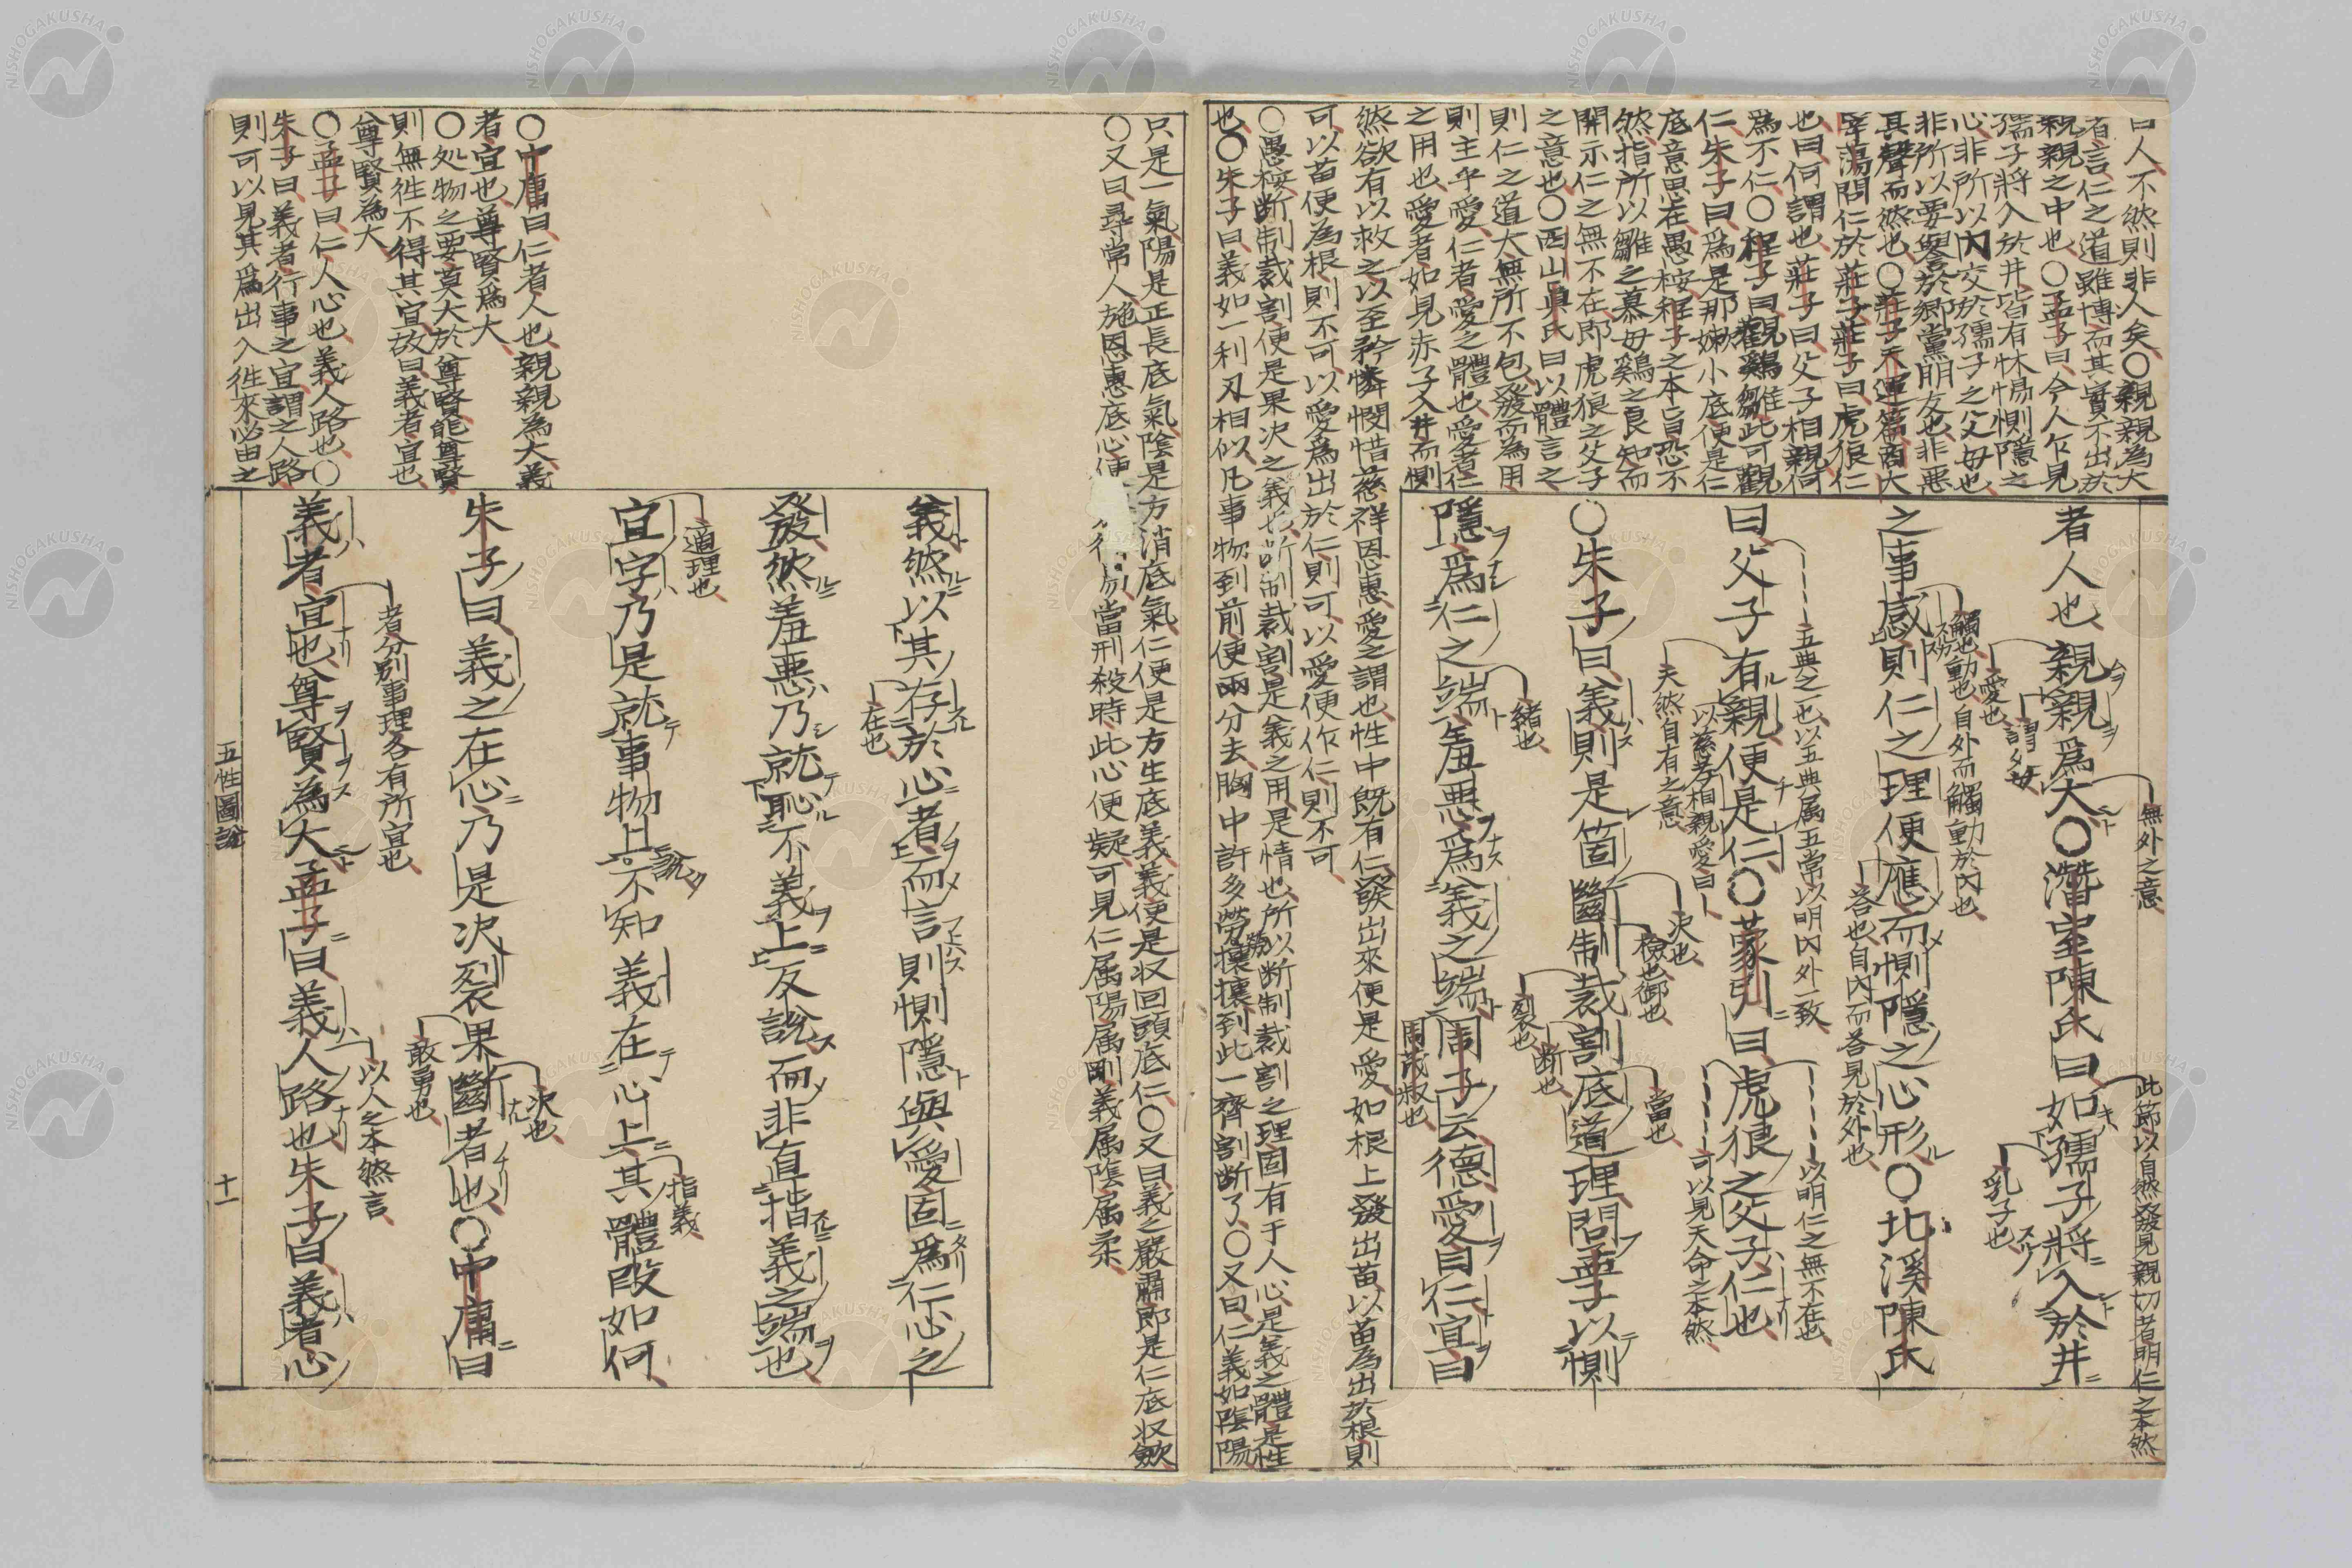 曰人不然則非人矣〇親親為大
者言仁之道雖博而其實不出於
親親之中也〇孟子曰今人乍見
孺子將入於井皆有怵惕惻隱之
心非所以內交於孺子之父母也
非所以要譽於鄉黨朋友也非惡
其聲而然也〇莊子天運篇商大
宰蕩問仁於莊子莊子曰虎狼仁
也曰何謂也莊子曰父子相親何
為不仁〇程子曰觀雞雛此可觀
仁朱子曰爲是那嫩小底便是仁
底意思在愚桉程子之本旨恐不
然指所以雛之慕母鷄之良知而
開示仁之無不在即虎狼之父子
之意也〇西山真氏曰以體言之
則仁之道大無所不包發而為用
則主乎愛仁者愛之體也愛者仁
之用也愛者如見赤子入井而惻
然欲有以救之以至矜憐憫惜慈祥恩惠愛之謂也性中既有仁發出來便是愛如根上發出苗以苗為出於根則
可以苗便為根則不可以愛爲出於仁則可以愛便作仁則不可
〇愚桉断制裁割便是果决之義也断制裁割是義之用是情也所以断制裁割之理固有于人心是義之體是性
也〇朱子曰義如一利刃相似凡事物到前便兩分去胸中許多勞勞攘攘到此一齊割断了〇又曰仁義如陰陽
無外之意
此節以自然發見親切者明仁之本然
者人也親親爲大〇潛室陳氏曰如孺子將入於井
愛也
謂父母
乳子也
之事感則仁之理便應而惻隱之心形〇北溪陳氏
觸也動也自外而觸動於內也
答也自內而答見於外也
曰父子有親便是仁〇蒙引曰虎狼之父子仁也
五典之一也以五典属五常以明內外一致
以慈孝相親愛曰
天然自有之意
以明仁之無不在也
可以見天命之本然
〇朱子曰義則是箇斷制裁割底道理問孟子以惻
决也
檢也御也
裂也
断也
當也
隱爲仁之端羞惡爲義之端周子云德愛曰仁宜曰
緒也
周茂叔也
只是一氣陽是正長底氣陰是方消底氣仁便是方生底義義便是収回頭底仁〇又曰義之嚴肅即是仁底収斂
〇又曰尋常人施恩惠底心便當刑殺時此心便疑可見仁属陽属剛義属陰属柔
義然以其存於心者而言則惻隱與愛固爲仁心之
在也
發然羞惡乃就恥不義上反說而非直指義之端也
宜字乃是就事物上說不知義在心上其體段如何
適理也
指義
朱子曰義之在心乃是决裂果斷者也〇中庸曰
敢勇也
决也
義者宜也尊賢為大孟子曰義人路也朱子曰義者心
者分別事理各有所宜也
以人之本然言
〇中庸曰仁者人也親親為大義
者宜也尊賢爲大
〇処物之要莫大於尊賢能尊賢
則無徃不得其宜故曰義者宜也
尊賢為大
〇孟子曰仁人心也義人路也〇
朱子曰義者行事之宜謂之人路
則可以見其爲出入徃來必由之
五性圖說
十一